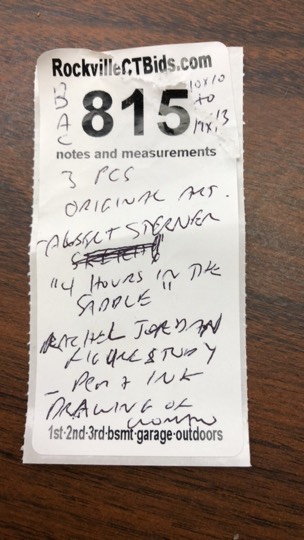 RockvilleCTBids.com
B
A
C
815
10x10
to
19x13
notes and measurements
3 PCS
ORIGINAL ART.
- ALBERT STERNER
"4 HOURS IN THE
SADDLE"
RACHEL JORDAN
FIGURE STUDY
- PEN & INK
DRAWING OF
WOMAN
1st-2nd-3rd-bsmt-garage-outdoors